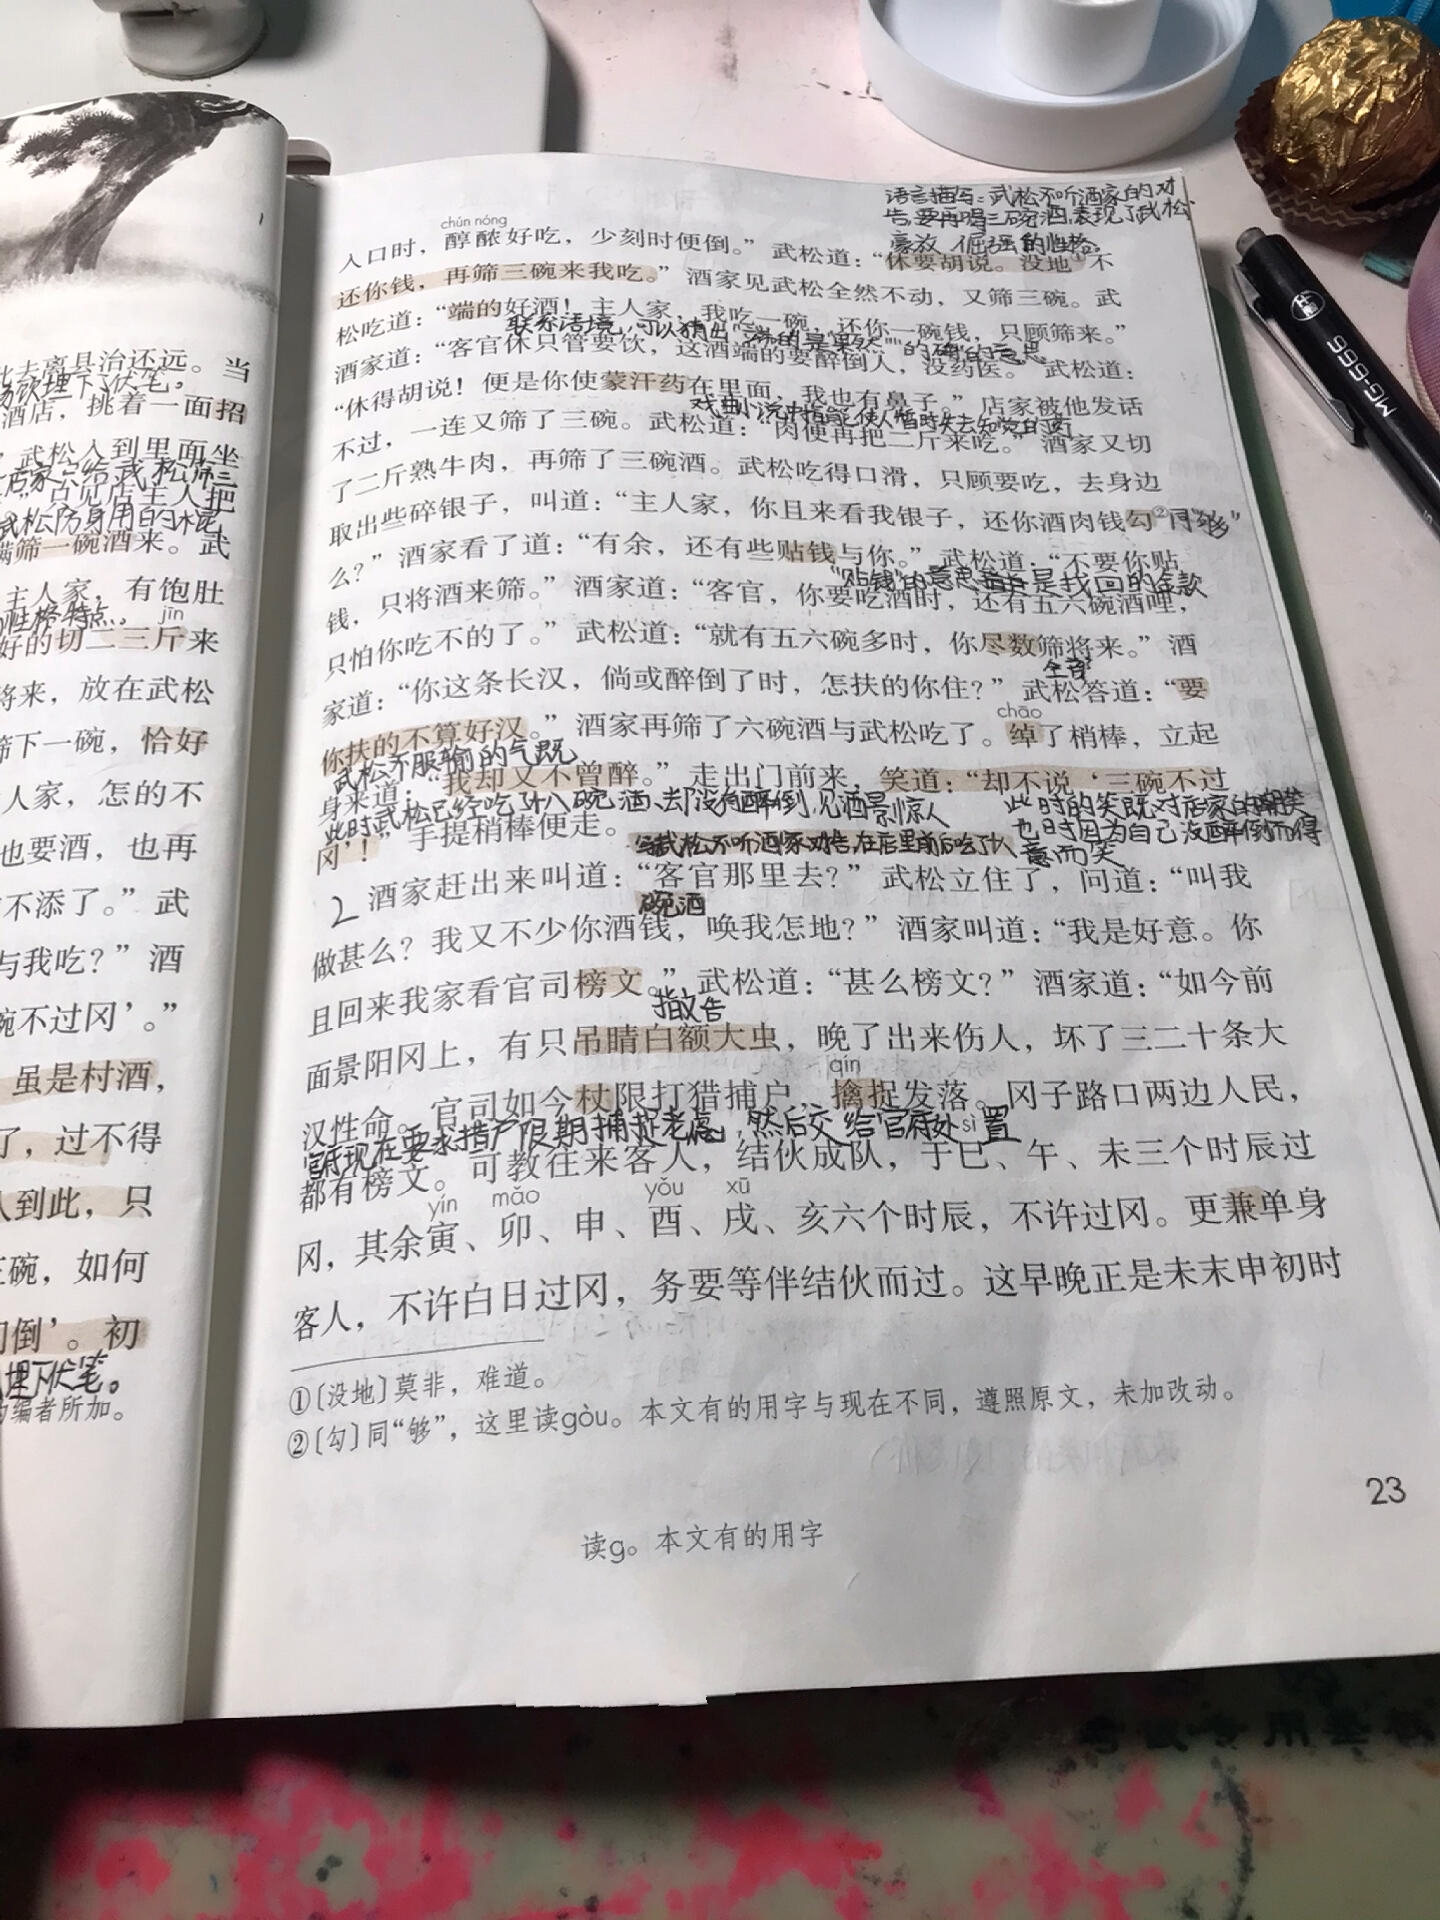 此去离县治还远。当
伤饮埋下伏笔,
酒店，挑着一面招
，武松入到里面坐
店家只给武松筛三
。”只见店主人把
武松防身用的棍
满筛一碗酒来。武
主人家，有饱肚
性格特点、
jīn
好的切二三斤来
将来，放在武松
筛下一碗，恰好
人家，怎的不
也要酒，也再
不添了。”武
与我吃？”酒
碗不过冈’。”
虽是村酒，
了，过不得
人到此，只
三碗，如何
倒’。初
埋下伏笔。
编者所加。
语言描写:武松不听酒家的对
告,要再喝三碗酒,表现了武松
豪放、倔强的性格。
chún nóng
入口时，醇醲好吃，少刻时便倒。”武松道：“休要胡说。没地①不
还你钱，再筛三碗来我吃。”酒家见武松全然不动，又筛三碗。武
松吃道：“端的好酒！主人家，我吃一碗，还你一碗钱，只顾筛来。”
联系语境,可以猜出“端的是”“果然”“的确”的意思
酒家道：“客官休只管要饮，这酒端的要醉倒人，没药医。”武松道：
“休得胡说！便是你使蒙汗药在里面，我也有鼻子。”店家被他发话
戏曲小说中指能使人暂时失去知觉的药
不过，一连又筛了三碗。武松道：“肉便再把二斤来吃。”酒家又切
了二斤熟牛肉，再筛了三碗酒。武松吃得口滑，只顾要吃，去身边
取出些碎银子，叫道：“主人家，你且来看我银子，还你酒肉钱勾②同“够”
么？”酒家看了道：“有余，还有些贴钱与你。”武松道：“不要你贴
“贴钱”的意思是找回的余款
钱，只将酒来筛。”酒家道：“客官，你要吃酒时，还有五六碗酒哩，
只怕你吃不的了。”武松道：“就有五六碗多时，你尽数筛将来。”酒
全部
家道：“你这条长汉，倘或醉倒了时，怎扶的你住？”武松答道：“要
chāo
你扶的不算好汉。”酒家再筛了六碗酒与武松吃了。绰了梢棒，立起
武松不服输的气概
身来道：“我却又不曾醉。”走出门前来，笑道：“却不说‘三碗不过
此时武松已经吃了十八碗酒、却没有醉倒,见酒量惊人
此时的笑既对店家的嘲笑
也时因为自己没醉倒而得
意而笑
冈’！”手提梢棒便走。
写武松不听酒家对告,在店里前后吃了十八
碗酒
2 酒家赶出来叫道：“客官那里去？”武松立住了，问道：“叫我
做甚么？我又不少你酒钱，唤我怎地？”酒家叫道：“我是好意。你
且回来我家看官司榜文。”武松道：“甚么榜文？”酒家道：“如今前
指文告
面景阳冈上，有只吊睛白额大虫，晚了出来伤人，坏了三二十条大
qín
汉性命。官司如今杖限打猎捕户，擒捉发落。冈子路口两边人民，
官府现在要求猎户限期捕捉老虎,然后交给官府处置
sì
都有榜文。可教往来客人，结伙成队，于巳、午、未三个时辰过
yín mǎo yǒu xū
冈，其余寅、卯、申、酉、戌、亥六个时辰，不许过冈。更兼单身
客人，不许白日过冈，务要等伴结伙而过。这早晚正是未末申初时
①〔没地〕莫非，难道。
②〔勾〕同“够”，这里读gòu。本文有的用字与现在不同，遵照原文，未加改动。
23
读g。本文有的用字
MG-666